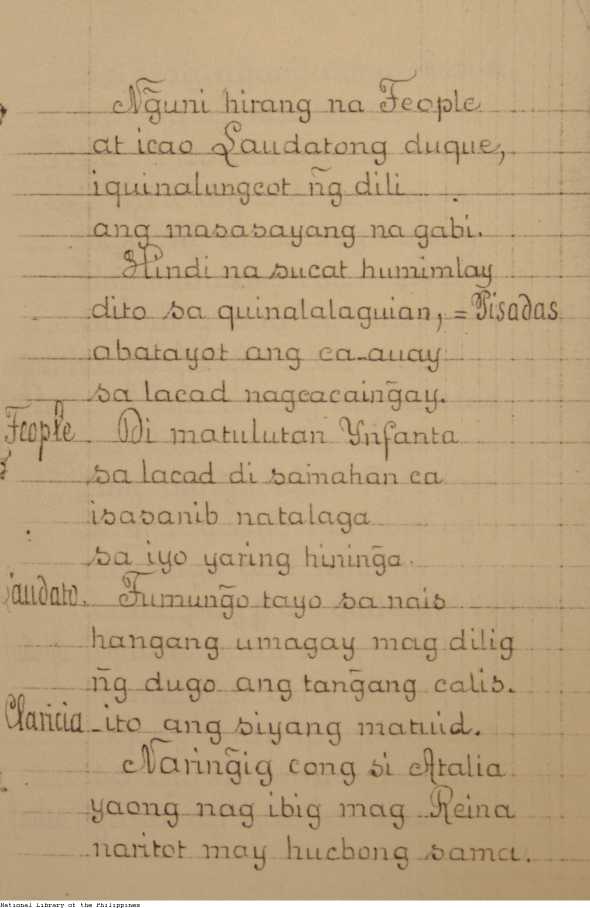 Ng̃uni hirang na Teople
at icao Laudatong duque,
iquinalungcot n̄g dili
ang masasayang na gabi.
Hindi na sucat humimlay
dito sa quinalalaguian, = Pisadas
abatayot ang ca-auay
sa lacad nagcacaing̃ay.
Teople Di matulutan Ynfanta
sa lacad di samahan ca
isasanib natalaga
sa iyo yaring hining̃a.
Laudato. Tumung̃o tayo sa nais
hangang umagay mag dilig
n̄g dugo ang tang̃ang calis.
Claricia -ito ang siyang matuid.
Naring̃ig cong si Atalia
yaong nag ibig mag Reina
naritot may hucbong sama.
National Library of the Philippines